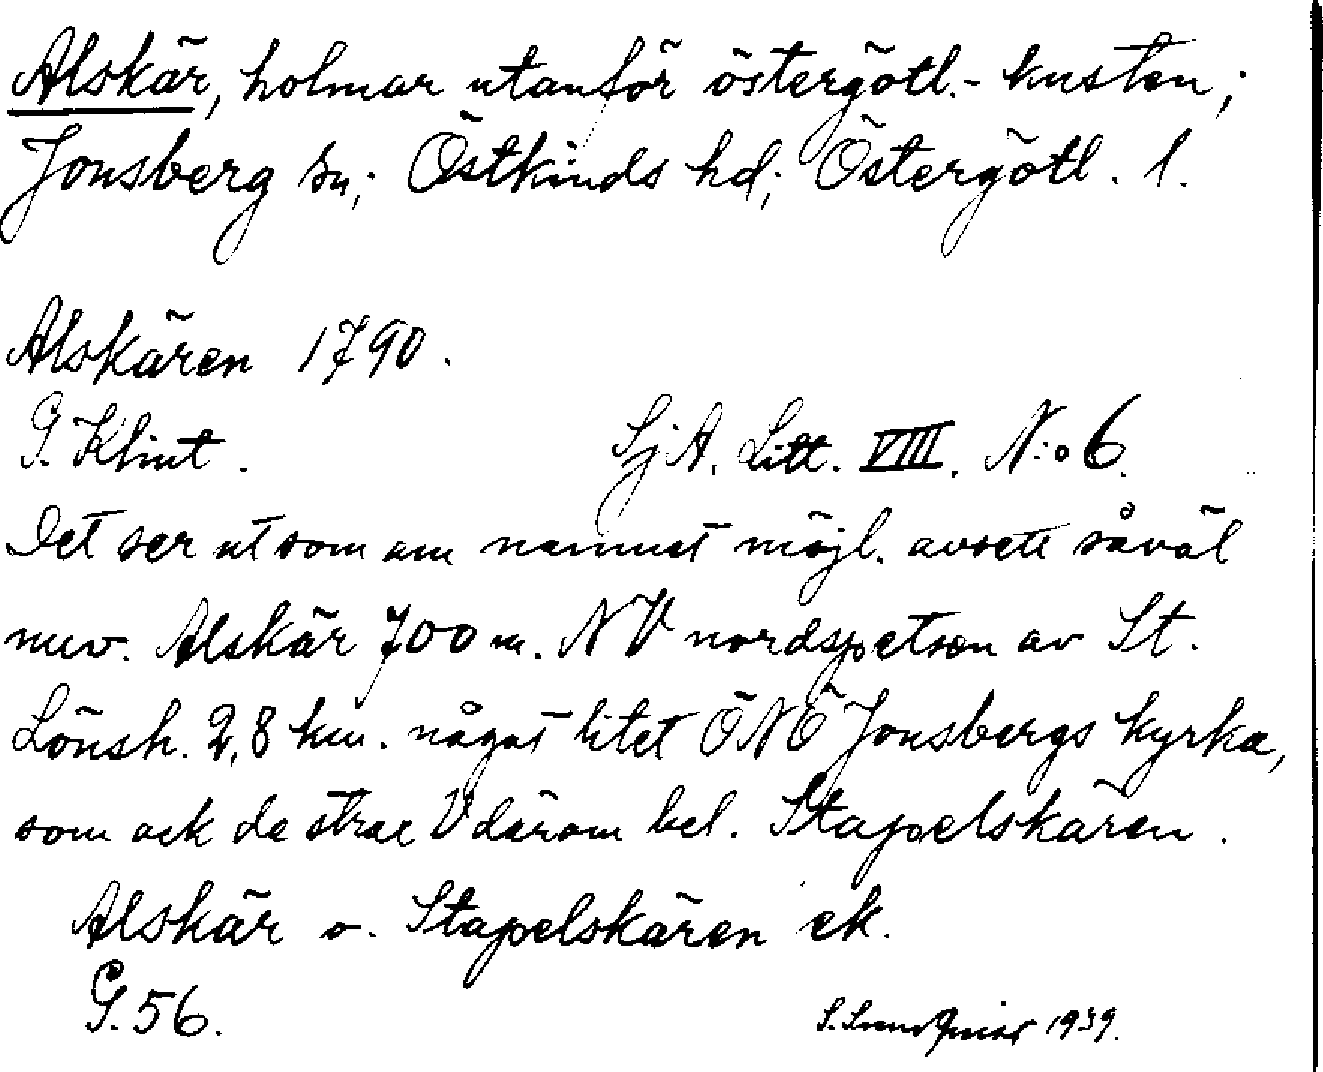 Alskär, holmar utanför östergötl.- kusten;
Jonsberg sn; Östkinds hd; Östergötl. l.
Alskären 1790.
G. Klint. Sj A. Litt. VIII. N:o 6.
Det ser ut som om namnet möjl. avsett såväl
nuv. Alskär 700 m. NV nordspetsen av St.
Lönsh. 2,8 km. något litet ÖNÖ Jonsbergs kyrka,
som ock de strax V därom bel. Stapelskären.
Alskär o. Stapelskären ek.
G. 56.
S. Sundquist 1939.